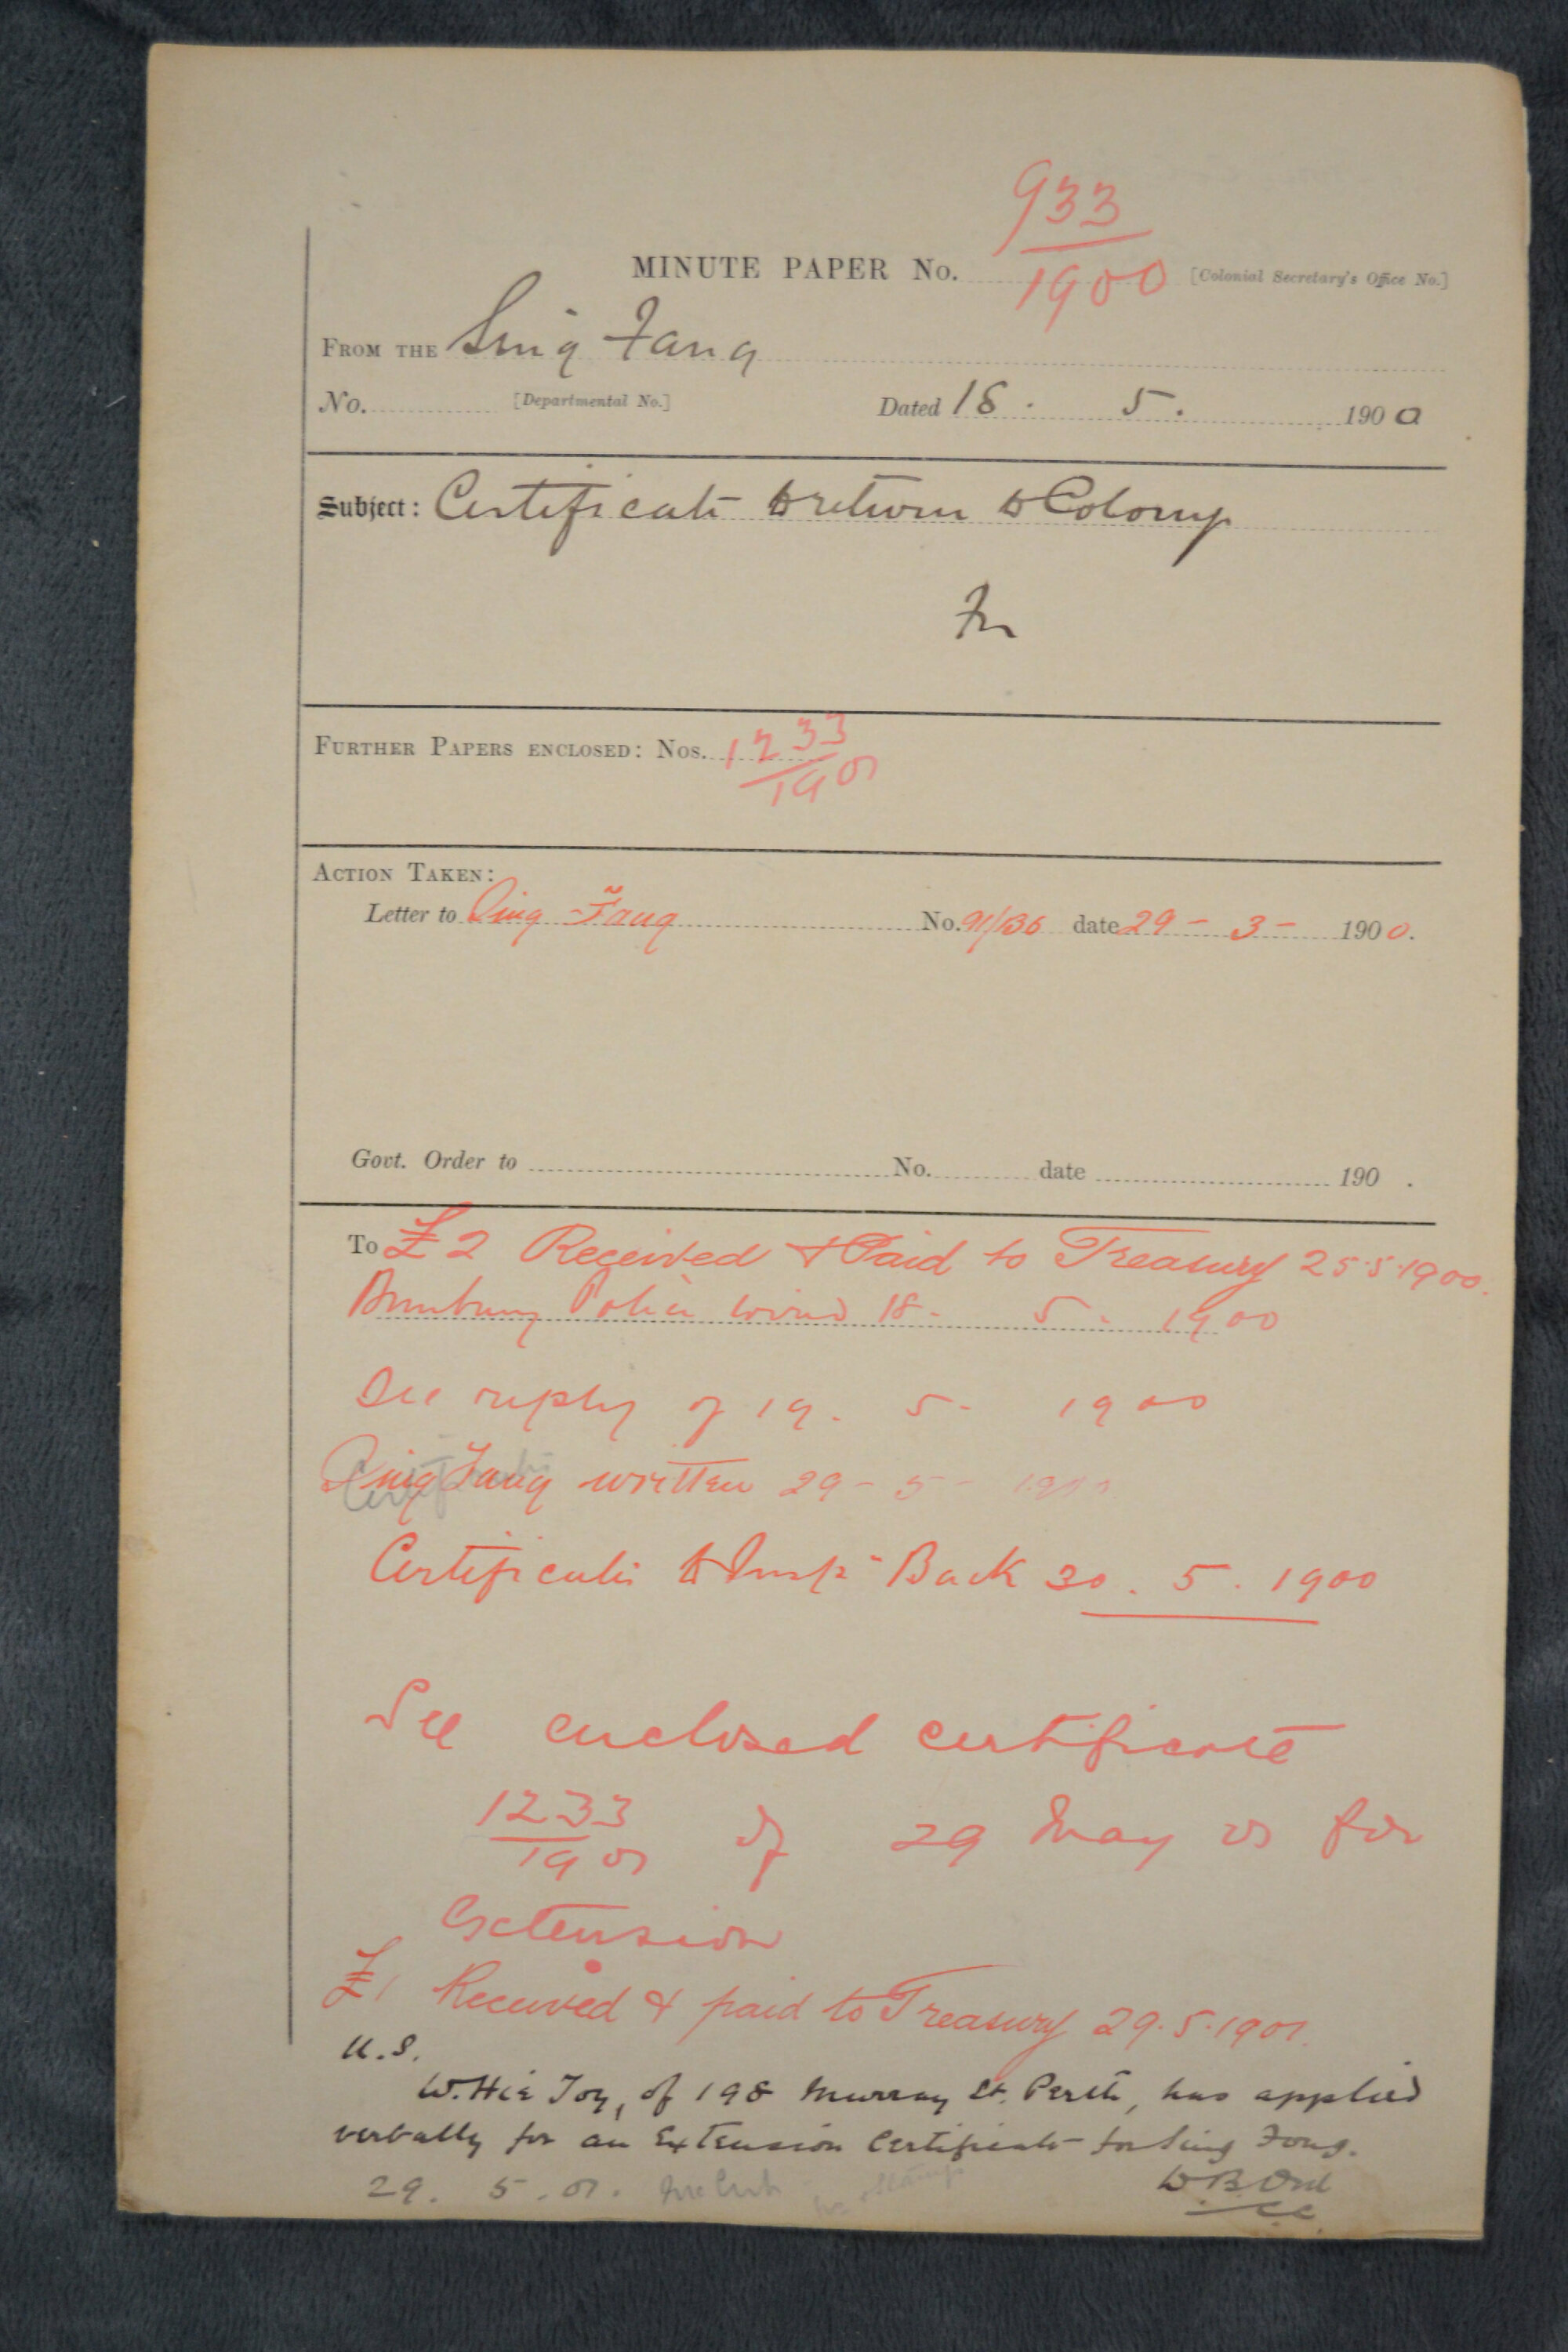 933
MINUTE PAPER No. 1900 [Colonial Secretary's Office No.]
FROM THE Sing Fang
No. [Departmental No.] Dated 18. 5. 1900
Subject: Certificate to return to Colony
FURTHER PAPERS ENCLOSED: Nos. 1233
1901
ACTION TAKEN:
Letter to Sing Fang No. 91/136 date 29 - 3 - 1900.
Govt. Order to No. date 190 .
To £2 Received & Paid to Treasury 25.5.1900.
Bunbury Police wired 18. 5. 1900
See reply of 19. 5. 1900
Sing Fang written 29 - 5 - 1900
Certificate to Insp Back 30. 5. 1900
See enclosed certificate
1233
1901 of 29 May 01 for
Extension
£1 Received & paid to Treasury 29.5.1901.
U.S.
W. Hie Joy, of 198 Murray St. Perth, has applied
verbally for an Extension Certificate for Sing Fong.
29. 5. 01. W B Ord
CC